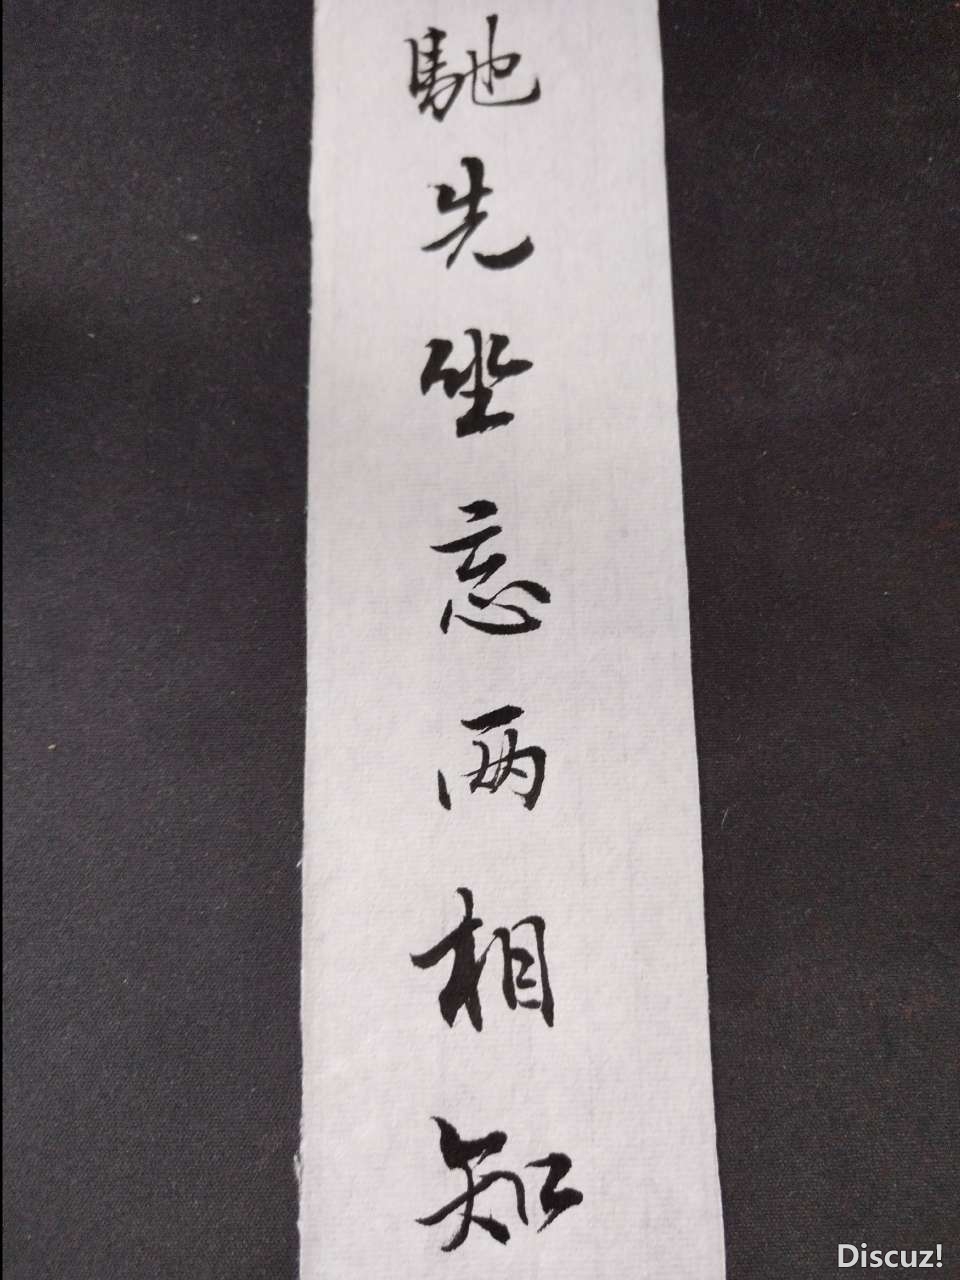 馳先坐忘两相知
Discuz!